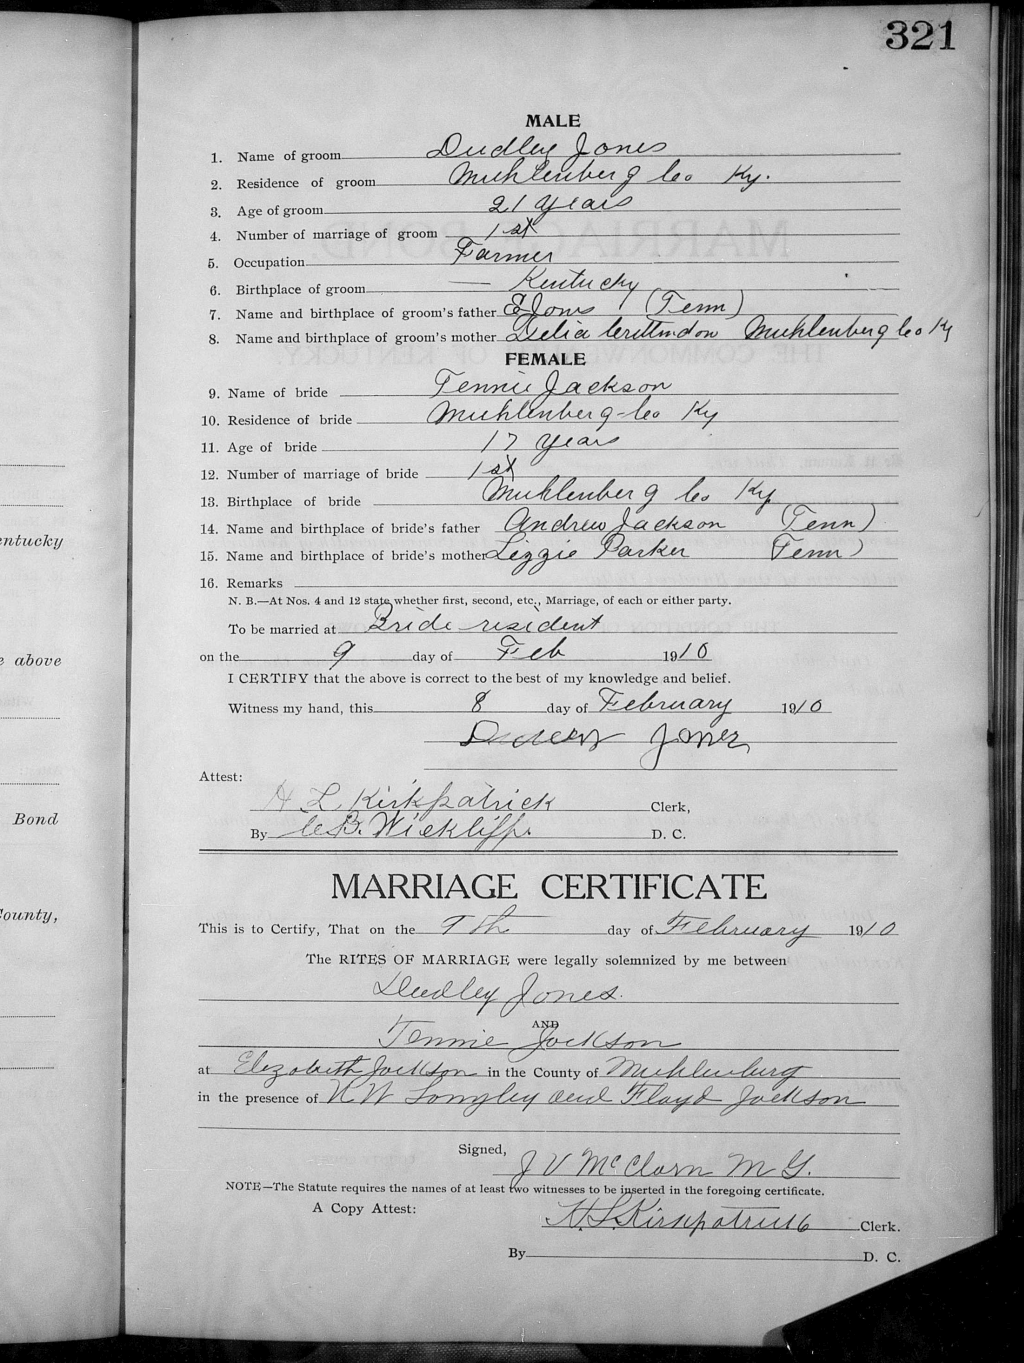 321
MALE
1. Name of groom Dudley Jones
2. Residence of groom Muhlenberg Co Ky.
3. Age of groom 21 years
4. Number of marriage of groom 1st
5. Occupation Farmer
6. Birthplace of groom Kentucky
7. Name and birthplace of groom's father E Jones (Tenn)
8. Name and birthplace of groom's mother Delia Crittendon Muhlenberg Co Ky
FEMALE
9. Name of bride Tennie Jackson
10. Residence of bride Muhlenberg Co Ky
11. Age of bride 17 years
12. Number of marriage of bride 1st
13. Birthplace of bride Muhlenberg Co Ky
14. Name and birthplace of bride's father Andrew Jackson (Tenn)
15. Name and birthplace of bride's mother Lizzie Parker (Tenn)
16. Remarks
N. B.—At Nos. 4 and 12 state whether first, second, etc., Marriage, of each or either party.
To be married at Bride resident
on the 9 day of Feb 1910
I CERTIFY that the above is correct to the best of my knowledge and belief.
Witness my hand, this 8 day of February 1910
Jones
Attest:
H L Kirkpatrick Clerk,
By C.B. Wickliffe D. C.
MARRIAGE CERTIFICATE
This is to Certify, That on the 9th day of February 1910
The RITES OF MARRIAGE were legally solemnized by me between
Dudley Jones.
AND
Tennie Jackson
at Elezabeth Jackson in the County of Muhlenburg
in the presence of Longley and Floyd Jackson
Signed,
J V McClarn M G.
NOTE—The Statute requires the names of at least two witnesses to be inserted in the foregoing certificate.
A Copy Attest:
H. L. Kirkpatrick Clerk.
By D. C.
entucky
e above
Bond
County,